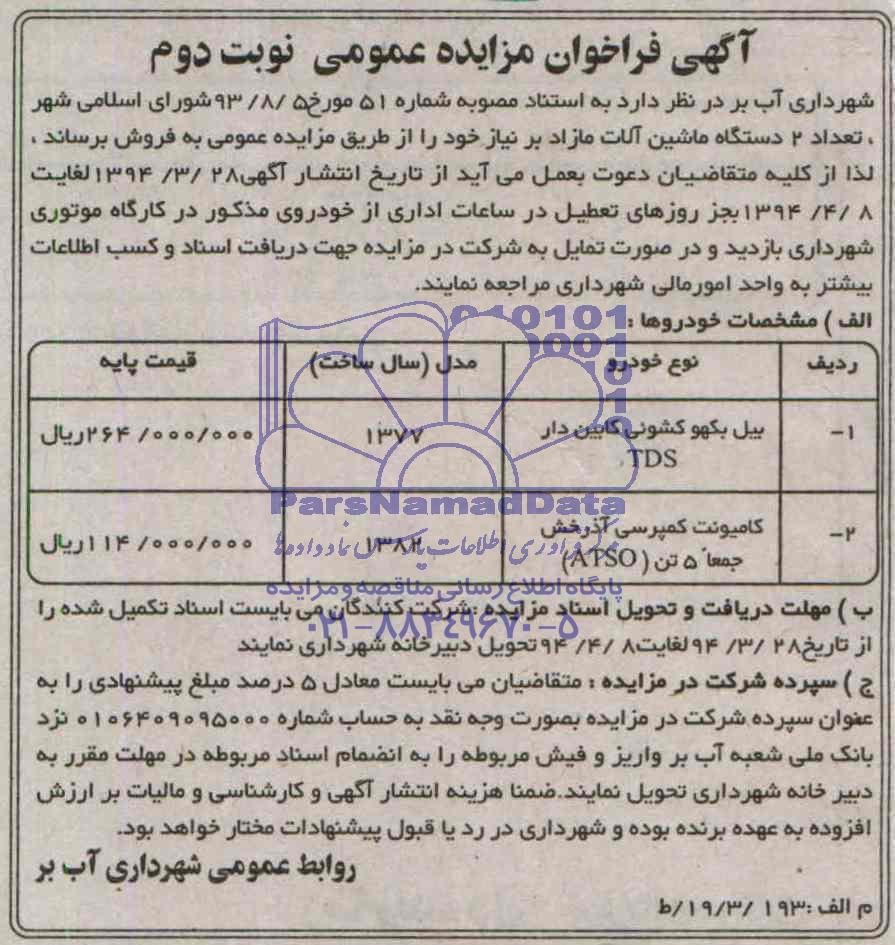 آگهی فراخوان مزایده عمومی نوبت دوم
شهرداری آب بر در نظر دارد به استناد مصوبه شماره ۵۱ مورخ۵ /۸/ ۹۳شورای اسلامی شهر
، تعداد ۲ دستگاه ماشین آلات مازاد بر نیاز خود را از طریق مزایده عمومی به فروش برساند ،
لذا از کلیه متقاضیان دعوت بعمل می آید از تاریخ انتشار آگهی۲۸ /۳/ ۱۳۹۴لغایت
۸ /۴/ ۱۳۹۴بجز روزهای تعطیل در ساعات اداری از خودروی مذکور در کارگاه موتوری
شهرداری بازدید و در صورت تمایل به شرکت در مزایده جهت دریافت اسناد و کسب اطلاعات
بیشتر به واحد امورمالی شهرداری مراجعه نمایند.
الف ) مشخصات خودروها :
ردیف نوع خودرو مدل (سال ساخت) قیمت پایه
۱- بیل بکهو کشونی کابین دار ۱۳۷۷ ۲۶۴/ ۰۰۰/۰۰۰ریال
TDS
۲- کامیونت کمپرسی آذرخش ۱۳۸۲ ۱۱۴/ ۰۰۰/۰۰۰ریال
جمعاً ۵ تن ( ATSO)
ParsNamadData
پایگاه اطلاع رسانی مناقصه و مزایده
۰۲۱-۸۸۳۴۹۶۷۰-۵
ب ) مهلت دریافت و تحویل اسناد مزایده :شرکت کنندگان می بایست اسناد تکمیل شده را
از تاریخ۲۸ /۳/ ۹۴لغایت۸ /۴/ ۹۴تحویل دبیرخانه شهرداری نمایند
ج ) سپرده شرکت در مزایده : متقاضیان می بایست معادل ۵ درصد مبلغ پیشنهادی را به
عنوان سپرده شرکت در مزایده بصورت وجه نقد به حساب شماره ۰۱۰۶۴۰۹۰۹۵۰۰۰ نزد
بانک ملی شعبه آب بر واریز و فیش مربوطه را به انضمام اسناد مربوطه در مهلت مقرر به
دبیر خانه شهرداری تحویل نمایند.ضمنا هزینه انتشار آگهی و کارشناسی و مالیات بر ارزش
افزوده به عهده برنده بوده و شهرداری در رد یا قبول پیشنهادات مختار خواهد بود.
روابط عمومی شهرداری آب بر
م الف :۱۹۳ /۱۹/۳/ط